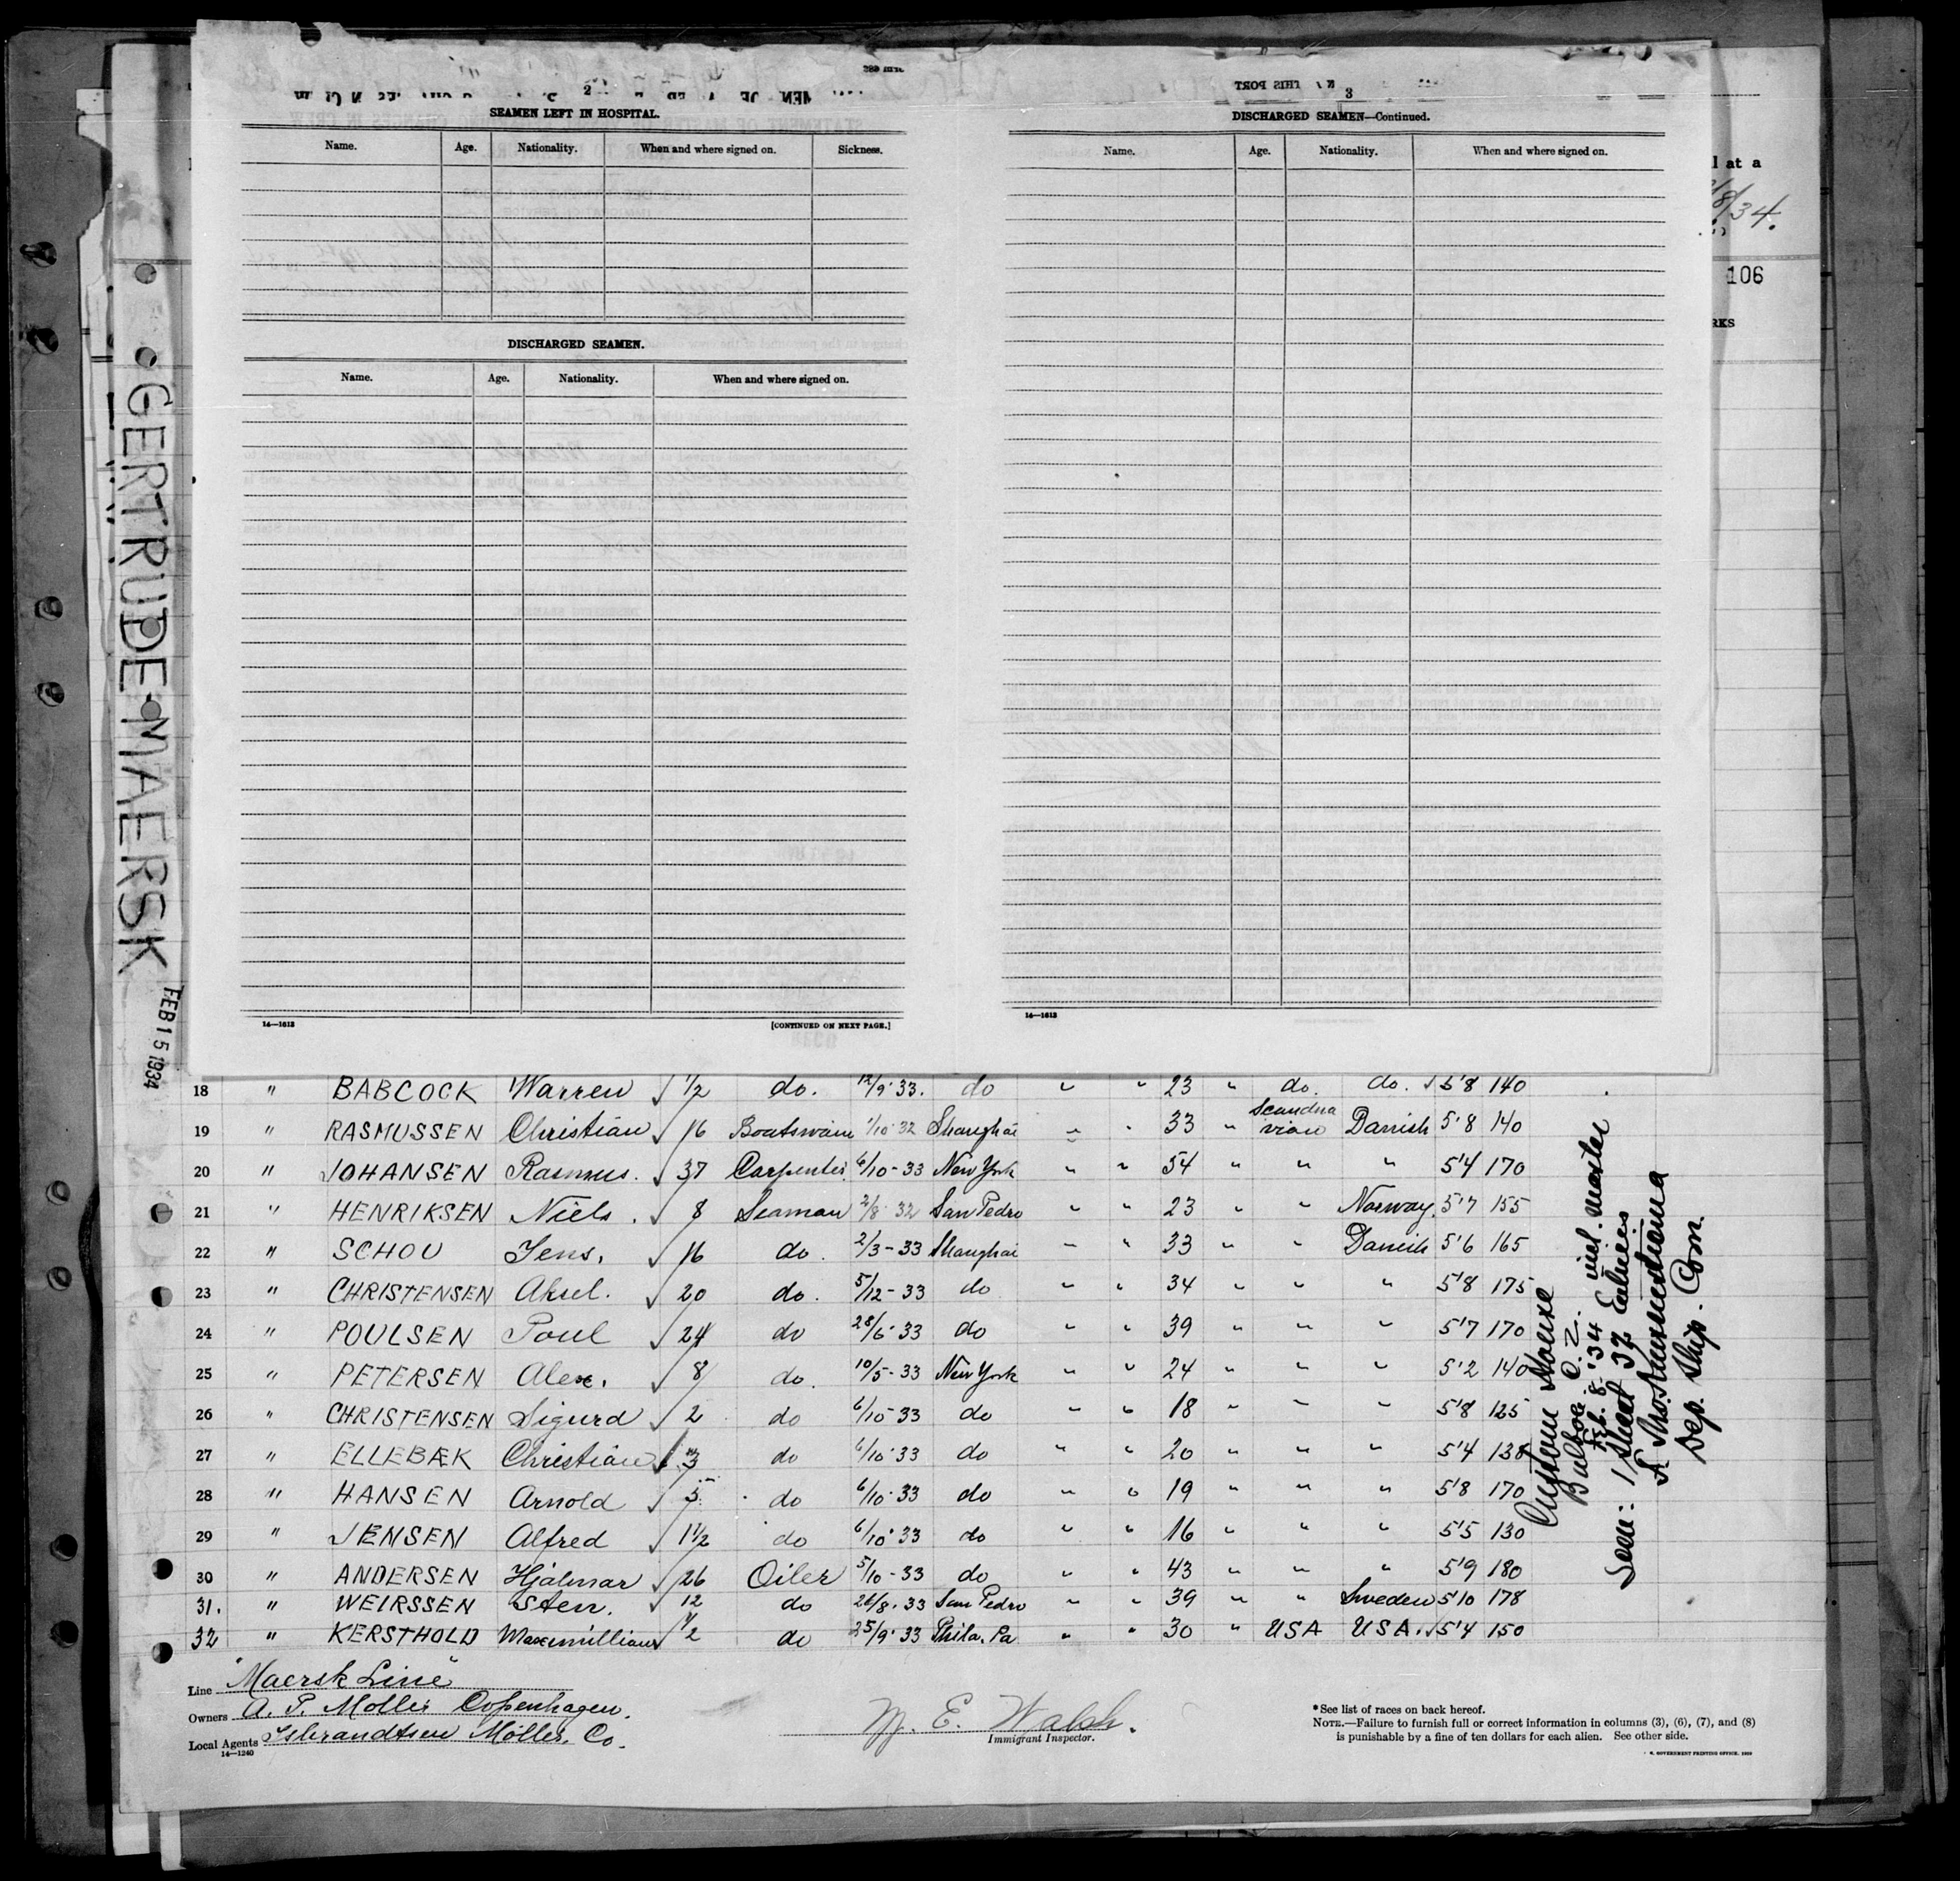 2
SEAMEN LEFT IN HOSPITAL.
Name. Age. Nationality. When and where signed on. Sickness.
DISCHARGED SEAMEN.
Name. Age. Nationality. When and where signed on.
14—1613 [CONTINUED ON NEXT PAGE.]
3
DISCHARGED SEAMEN—Continued.
Name. Age. Nationality. When and where signed on.
14—1613
at a
8/34.
106
RKS
GERTRUDE MAERSK
FEB 15 1934
18 " BABCOCK Warren √ 1/2 do. 12/9 33. do " " 23 " do. do. √ 5'8 140
19 " RASMUSSEN Christian √ 16 Boatswain 1/10 32 Shanghai " " 33 " Scandina vian Danish 5'8 140
20 " JOHANSEN Rasmus. √ 37 Carpenter 6/10-33 New York " " 54 " " " 5'4 170
21 " HENRIKSEN Niels. √ 8 Seaman 2/8 32 San Pedro " " 23 " " Norway. 5'7 155
22 " SCHOU Jens. √ 16 do. 2/3-33 Shanghai " " 33 " " Danish 5'6 165
23 " CHRISTENSEN Aksel. √ 20 do. 5/12-33 do " " 34 " " " 5'8 175
24 " POULSEN Poul √ 24 do 28/6-33 do " " 39 " " " 5'7 170
25 " PETERSEN Alex. √ 8 do. 10/5-33 New York " " 24 " " " 5'2 140
26 " CHRISTENSEN Sigurd √ 2 do 6/10-33 do " " 18 " " " 5'8 125
27 " ELLEBÆK Christian √ 3 do 6/10-33 do " " 20 " " " 5'4 138
28 " HANSEN Arnold √ 5 do 6/10-33 do " " 19 " " " 5'8 170
29 " JENSEN Alfred √ 1 1/2 do 6/10-33 do " " 16 " " " 5'5 130
30 " ANDERSEN Hjalmar √ 26 Oiler 5/10-33 do " " 43 " " " 5'9 180
31. " WEIRSSEN Sten. √ 12 do 26/8.33 San Pedro " " 39 " " Sweden 5'10 178
32 " KERSTHOLD Maxemillian √ 1/2 do 25/9-33 Phila. Pa " " 30 " USA USA. √ 5'4 150
Custom House
Balboa C. Z.
Feb. 8. '34
Seen: 1 sheet 32 Entries incl. Master
Dep. Ship. Com.
Line "Maersk Line"
Owners A. P. Moller Copenhagen.
Local Agents Isbrandtsen Möller. Co.
14—1240
M. E. Walsh.
Immigrant Inspector.
*See list of races on back hereof.
NOTE.—Failure to furnish full or correct information in columns (3), (6), (7), and (8)
is punishable by a fine of ten dollars for each alien. See other side.
GOVERNMENT PRINTING OFFICE